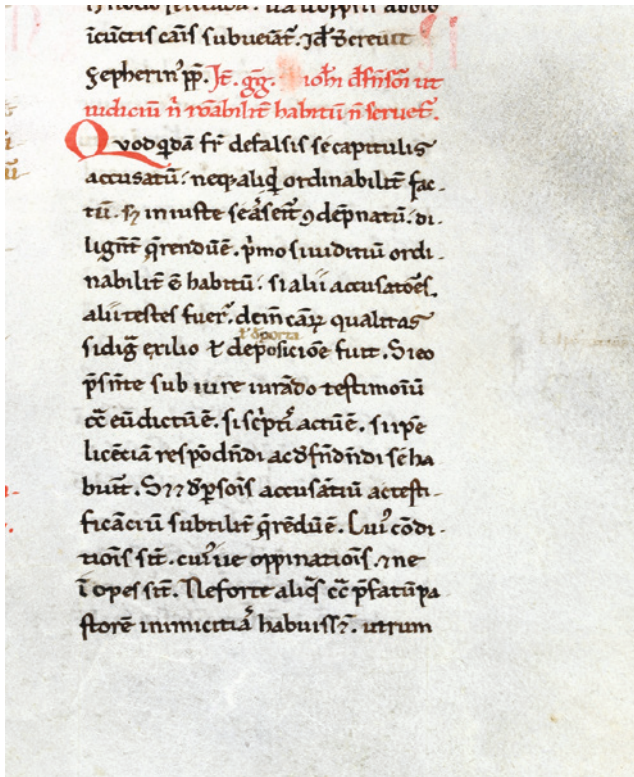 icūctis cāis subueiāt᷑. Id᷑ decreuit
Zepherin᷒ pp̄. It̄. gḡ. ioh̄i dfn̄sori ut
iudiciū n̄ rōabilit̄ habitū n̄ seruet᷑.
Quod qdā fr̄ de falsis se capitulis
accusatū : neq; aliqd ordinabilit̄ fac-
tū. iniuste se ꝯdēpnatū. di-
ligēt̄ q̄rendū ē. p̄mo si iuditiū ordi-
nabilit̄ ē habitū : si alii accusatōes,
alii testes fuer̄. dein cāꝝ qualitas
si dig̃ exilio ł depōsiciōe fuit. Si eo
p̄sēte sub iure iurādo testimoīū
cō̄ eū dictū ē. si sc̄pti actū ē. si ipē
licēciā respōdn̄di ac dfn̄dn̄di sē ha
buit. de p̱sois accusātiū ac testi-
ficāciū subtilit̄ q̄rēdū ē. Cui᷒ cōdi-
tiōis sit̄. cui᷒ue oppinatiōis. ⁊ ne
īopes sit̄. Ne forte aliq̄s cō̄ p̄fatū pa
storē inimicitiā habuiss⁊. utrum